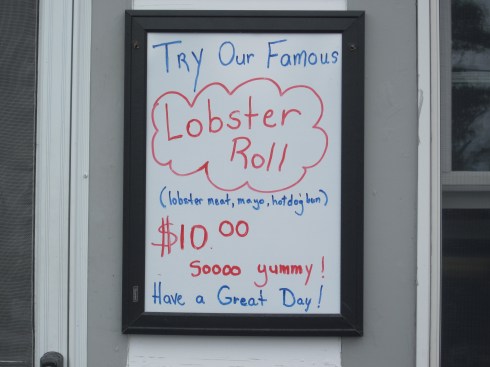 Try Our Famous
Lobster
Roll
(lobster meat, mayo, hotdog bun)
$10.00
Soooo yummy!
Have a Great Day!